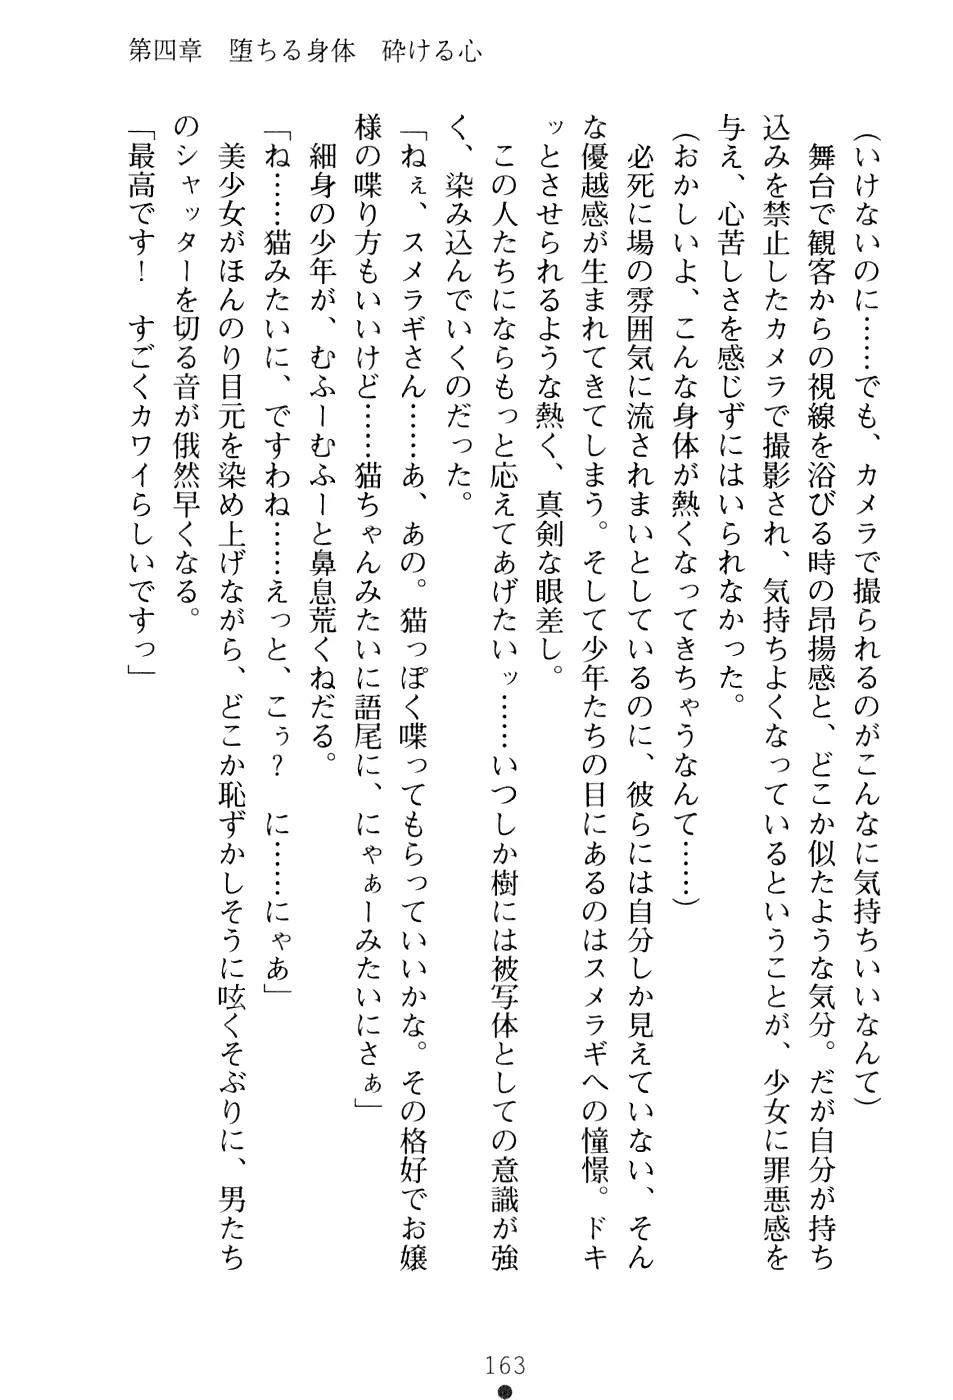 第四章　堕ちる身体　砕ける心
（いけないのに……でも、カメラで撮られるのがこんなに気持ちいいなんて）
　舞台で観客からの視線を浴びる時の昂揚感と、どこか似たような気分。だが自分が持ち
込みを禁止したカメラで撮影され、気持ちよくなっているということが、少女に罪悪感を
与え、心苦しさを感じずにはいられなかった。
（おかしいよ、こんな身体が熱くなってきちゃうなんて……）
　必死に場の雰囲気に流されまいとしているのに、彼らには自分しか見えていない、そん
な優越感が生まれてきてしまう。そして少年たちの目にあるのはスメラギへの憧憬。ドキ
ッとさせられるような熱く、真剣な眼差し。
　この人たちにならもっと応えてあげたいッ……いつしか樹には被写体としての意識が強
く、染み込んでいくのだった。
「ねぇ、スメラギさん……あ、あの。猫っぽく喋ってもらっていいかな。その格好でお嬢
様の喋り方もいいけど……猫ちゃんみたいに語尾に、にゃぁーみたいにさぁ」
　細身の少年が、むふーむふーと鼻息荒くねだる。
「ね……猫みたいに、ですわね……えっと、こぅ？　に……にゃあ」
　美少女がほんのり目元を染め上げながら、どこか恥ずかしそうに呟くそぶりに、男たち
のシャッターを切る音が俄然早くなる。
「最高です！　すごくカワイらしいですっ」
163